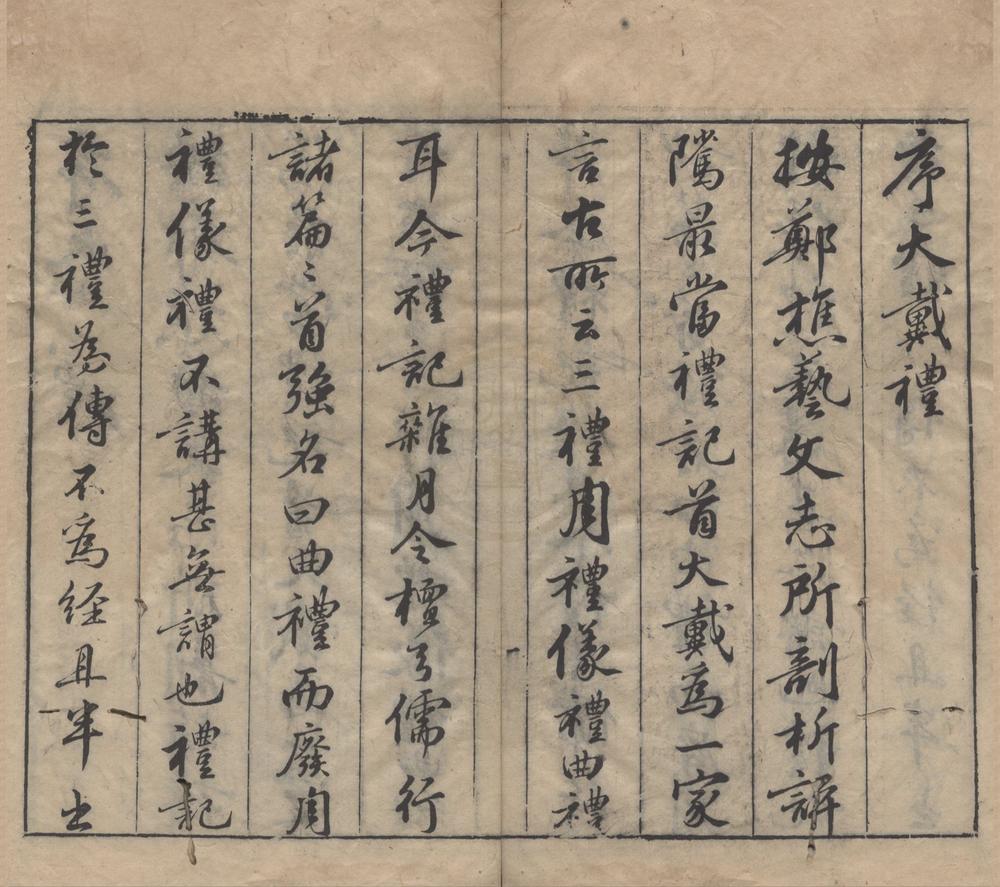 序大戴禮
按鄭樵藝文志所剖析訛
隲最當禮記首大戴為一家
言古所云三禮周禮儀禮曲禮
耳今禮記雜月令檀弓儒行
諸篇〻首強名曰曲禮而廢周
禮儀禮不講甚無謂也禮記
於三禮為傳不為经且半出